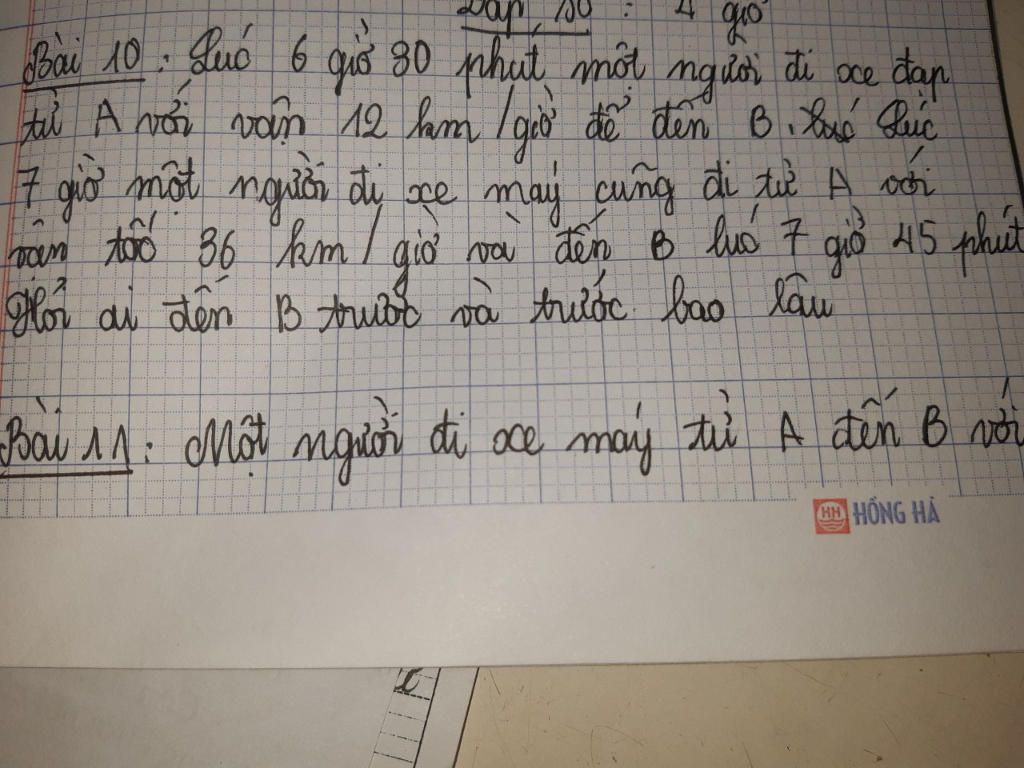 Đáp số: 4 giờ
Bài 10: Lúc 6 giờ 30 phút một người đi xe đạp
từ A với vận 12 km/giờ để đến B. Lúc
7 giờ một người đi xe máy cũng đi từ A với
vân tốc 36 km/giờ và đến B lúc 7 giờ 45 phút
Hỏi ai đến B trước và trước bao lâu
Bài 11: Một người đi xe máy từ A đến B với
HH HỒNG HÀ